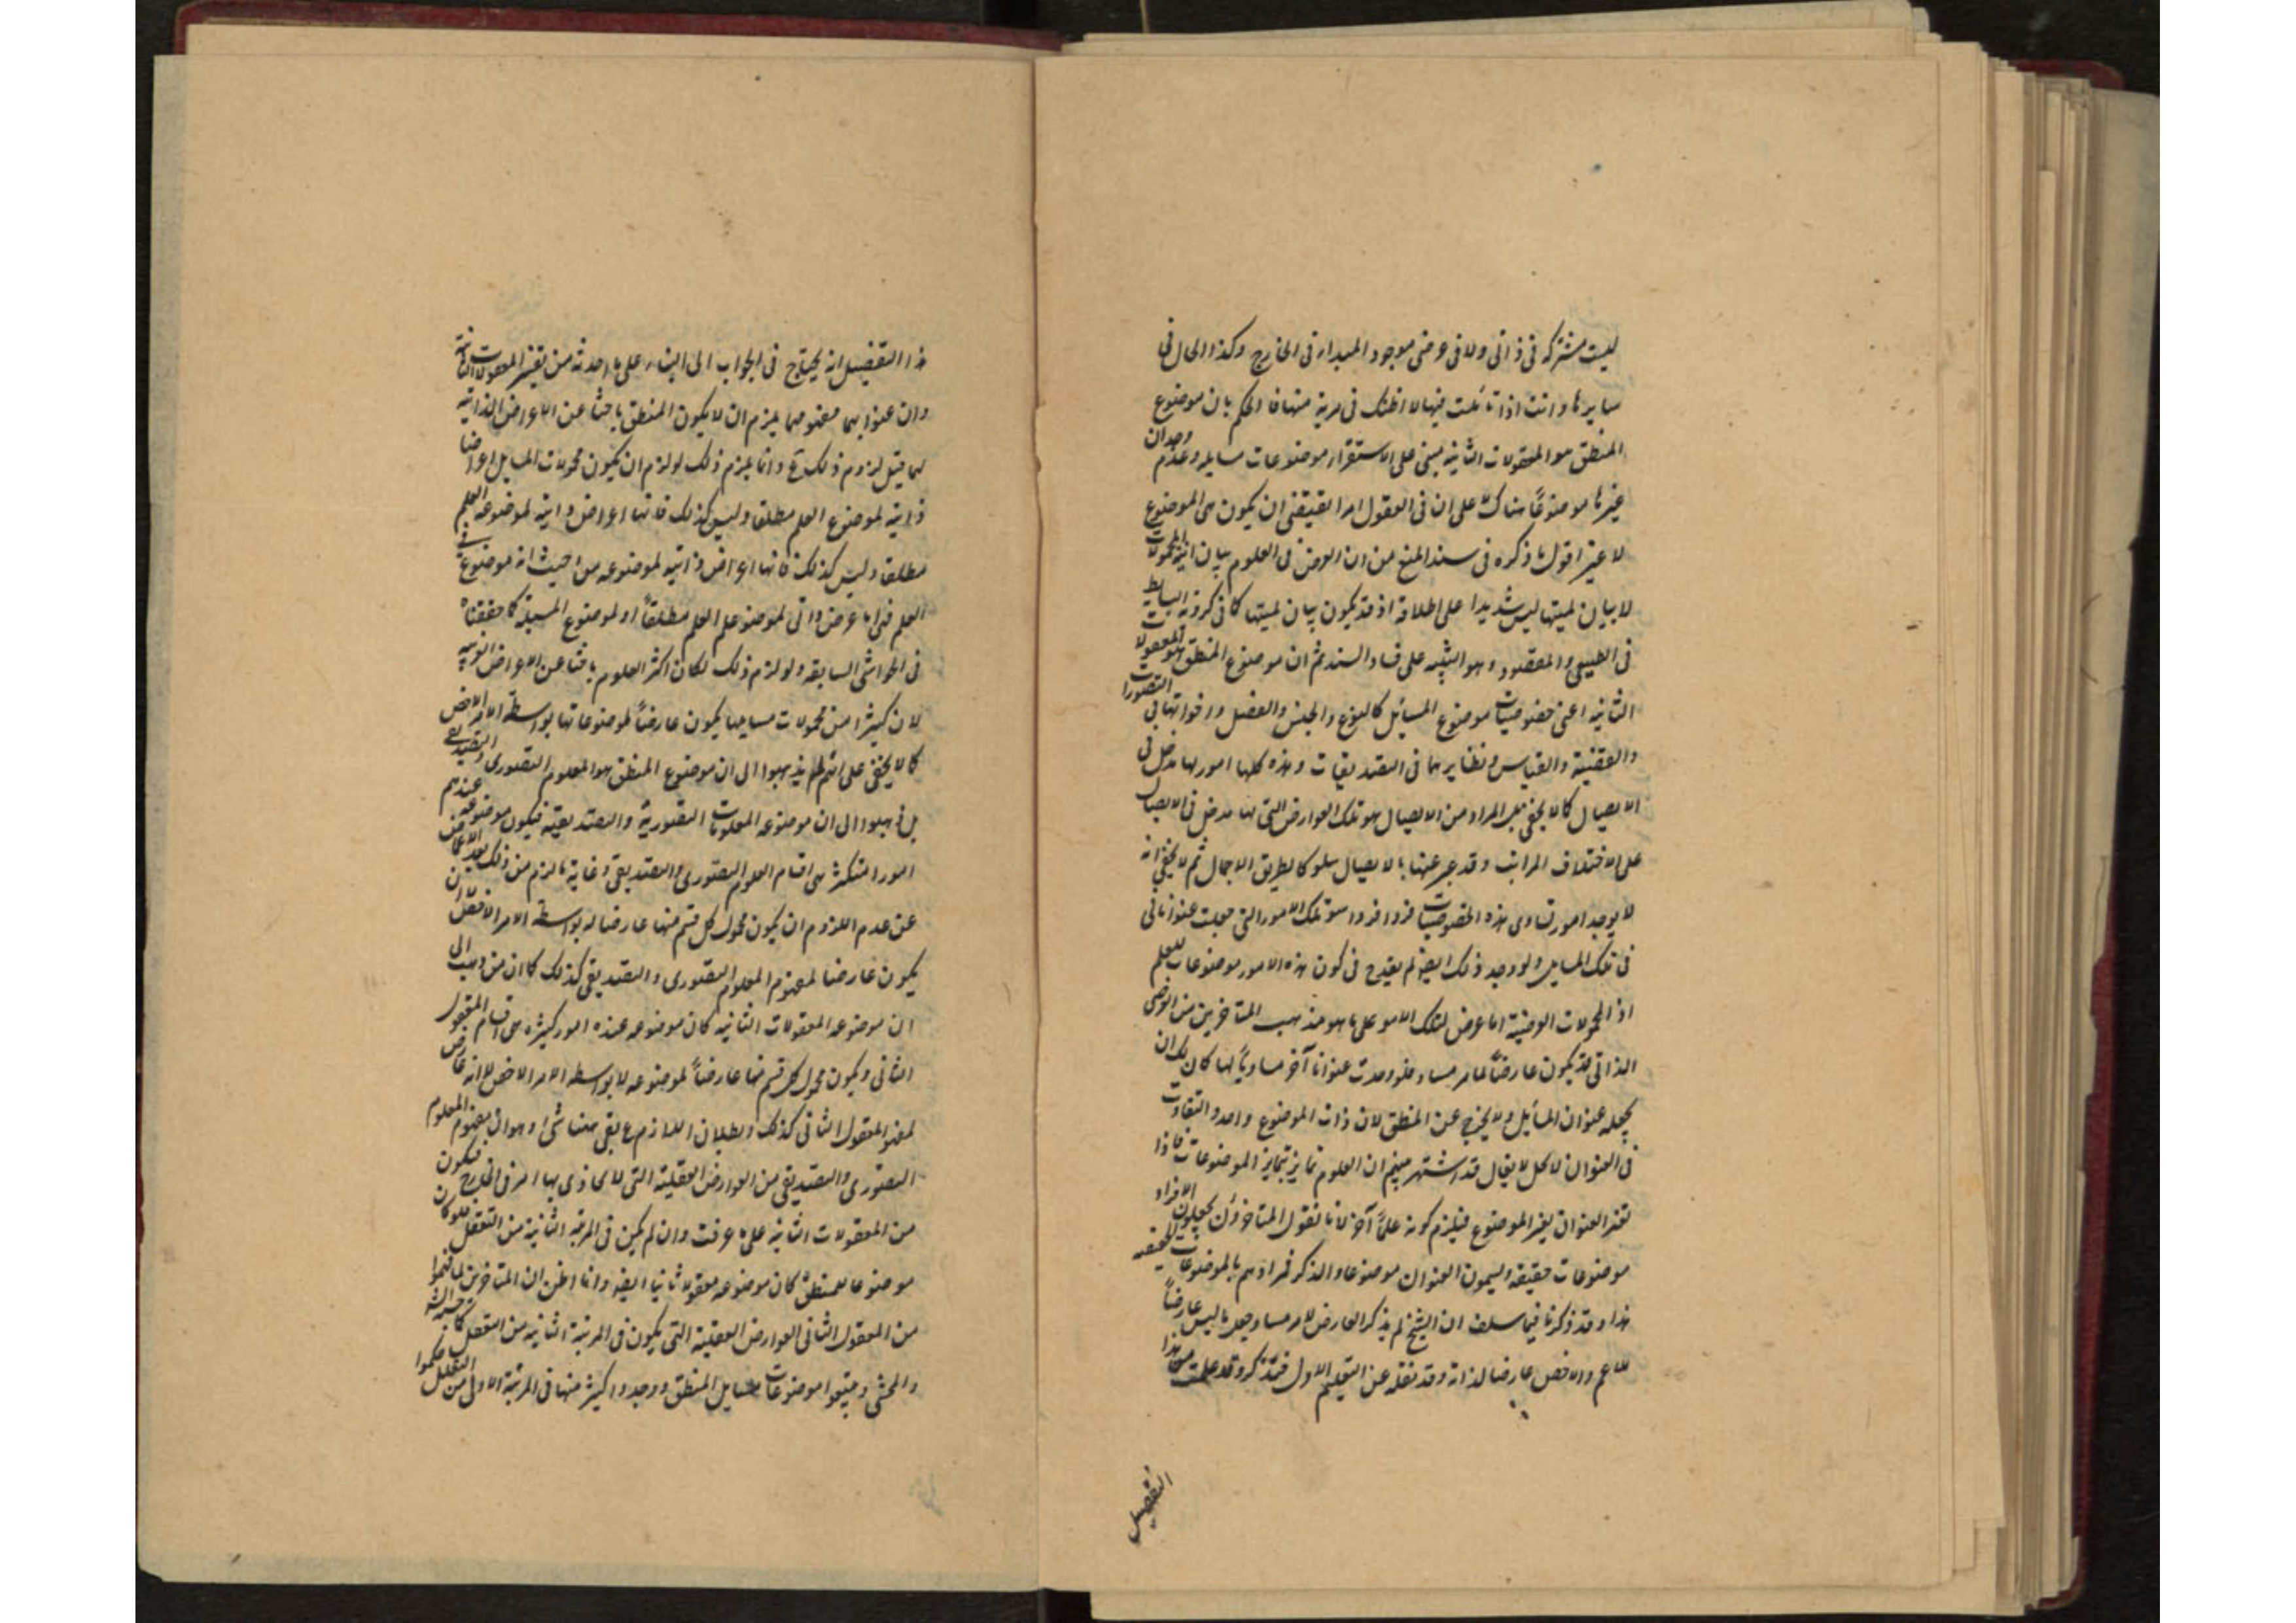 ليست مشتركه فى ذاتى ولا فى عرضى موجود المبدا فى الخارج وكذا الحال فى
سايرها وانت اذا تاملت فيها لا اظنك فى مرية منها فالحكم بان موضوع
المنطق هو المعقولات الثانيه مبنى على الاستقراء موضوعات مسايله وعدم وجدان
غيرها موضوعاً هناك على ان فى العقول امرا يقتضى ان يكون هى الموضوع
لا غير اقول ما ذكره فى سند المنع من ان الغرض فى العلوم بيان انية المحمولات
لا بيان لميتها ليس شديدا على اطلاقه اذ قد يكون بيان لميتها كما فى كروية البسايط
فى الطبيعى والمقصود هو التنبيه على فساد السند ثم ان موضوع المنطق هو المعقولات
الثانيه اعنى خصوصيات موضوع المسائل كالنوع والجنس والفصل واخواتها فى التصورات
والقضية والقياس ونظايرهما فى التصديقات وهذه كلها امور لها مدخل فى
الايصال كما لا يخفى بل المراد من الايصال هو تلك العوارض التى لها مدخل فى الايصال
على اختلاف المراتب وقد عبر عنها بالايصال سلوكا لطريق الاجمال ثم لا يخفى انه
لا يوجد امور تساوى هذه الخصوصيات فردا فردا سوى تلك الامور التى جعلت عنوانا فى
فى تلك المسايل ولو وجد ذلك ايضا لم يقدح فى كون هذه الامور موضوعات للعلم
اذ المحمولات العرضية اما عرض لتلك الامور على ما هو مذهب المتاخرين من العرضى
الذاتى قد يكون عارضاً لامر مساو فلو وجدت عنوانا آخر مساوياً لها كان لك ان
تجعله عنوان المسايل ولا يخرج عن المنطق لان ذات الموضوع واحد والتفاوت
فى العنوان لا يقال قد اشتهر بينهم ان العلوم تمايز بتمايز الموضوعات فاذا
تغير العنوان يغير الموضوع فيلزم كونه علماً آخر لانا نقول المتاخرون يجعلون الافراد
موضوعات حقيقه ويسمون العنوان موضوعا والذكر فمرادهم بالموضوعات الحقيقه
هذا وقد ذكرنا فيما سلف ان الشيخ لم يذكر العارض لامر مساو وجعل ما ليس عارضاً
للاعم والاخص عارضا لذاته وقد نقله عن التعليم الاول فتذكر وقد علمت من هذا
التفصيل
ذا التفصيل انه يحتاج فى الجواب الى البناء على ما احدثه من تفسير المعقولات الثانية
وان عنوا بهما مفهومهما يلزم ان لا يكون المنطق باحثا عن الاعراض الذاتية
لهما قيل لزوم ذلك ع وانما يلزم ذلك لو لزم ان يكون محمولات المسايل اعراضا
ذاتية لموضوع العلم مطلقا وليس كذلك فانها اعراض ذاتية لموضوع العلم
مطلقا وليس كذلك فانها اعراض ذاتيه لموضوعه من حيث انه موضوع فى
العلم فى عرض ذاتى لموضوع العلم مطلقاً او لموضوع المسيلة كما حققناه
فى الحواشى السابقه ولو لزم ذلك لكان اكثر العلوم باحثا عن الاعراض الغريبه
لان كثيرا من محمولات مسايلها يكون عارضاً لموضوعاتها بواسطة الامر الاخص
كما لا يخفى على انهم لم يذهبوا الى ان موضوع المنطق هو المعلوم التصورى والتصديقى
بل ذهبوا الى ان موضوعه المعلومات التصورية والتصديقيه فيكون موضوعه عندهم
امورا متكثرة هى اقسام المعلوم التصورى والتصديقى وغاية ما لزم من ذلك بعد الاغماض
عن عدم اللزوم ان يكون محمول كل قسم منها عارضا له بواسطة الامر الاخص لا ان
يكون عارضا لمفهوم المعلوم التصورى والتصديقى كذلك كما ان من ذهب الى
ان موضوعه المعقولات الثانيه كان موضوعه عنده امور كثيره هى اقسام المعقول
الثانى ويكون محمول كل قسم منها عارضاً لموضوعه لا بواسطه الامر الاخص لا انه عارض
لمفهوم المعقول الثانى كذلك وبطلان اللازم ع بقى ههنا شئ وهو ان مفهوم المعلوم
التصورى والتصديقى من العوارض العقلية التى لا يحاذى بها امر فى الخارج فيكون
من المعقولات الثانيه على ما عرفت وان لم يكن فى المرتبه الثانية من التعقل فلو كان
موضوعا للمنطق كان موضوعه معقولا ثانيا ايضا وانا اظن ان المتاخرين لما فهموا
من المعقول الثانى العوارض العقلية التى يكون فى المرتبة الثانيه من التعقل
والمحشى وتتبعوا موضوعات مسايل المنطق ووجدوا كثيرا منها فى المرتبة الاولى من التعقل حكموا